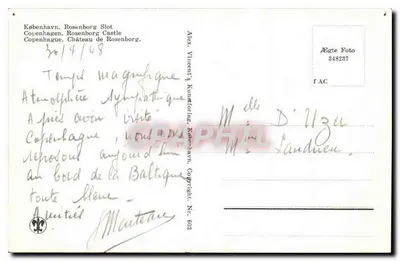 København. Rosenborg Slot
Copenhagen. Rosenborg Castle
Copenhague. Château de Rosenborg.
Temps magnifique
Atmosphère sympathique
Après avoir visité
Copenhague, nous nous
reposons aujourd'hui
au bord de la Baltique
toute bleue.
Amitiés
Alex. Vincent's Kunstforlag, København. Copyright. Nr. 602
Ægte Foto
348287
TAC
Melle D'Uzu
M